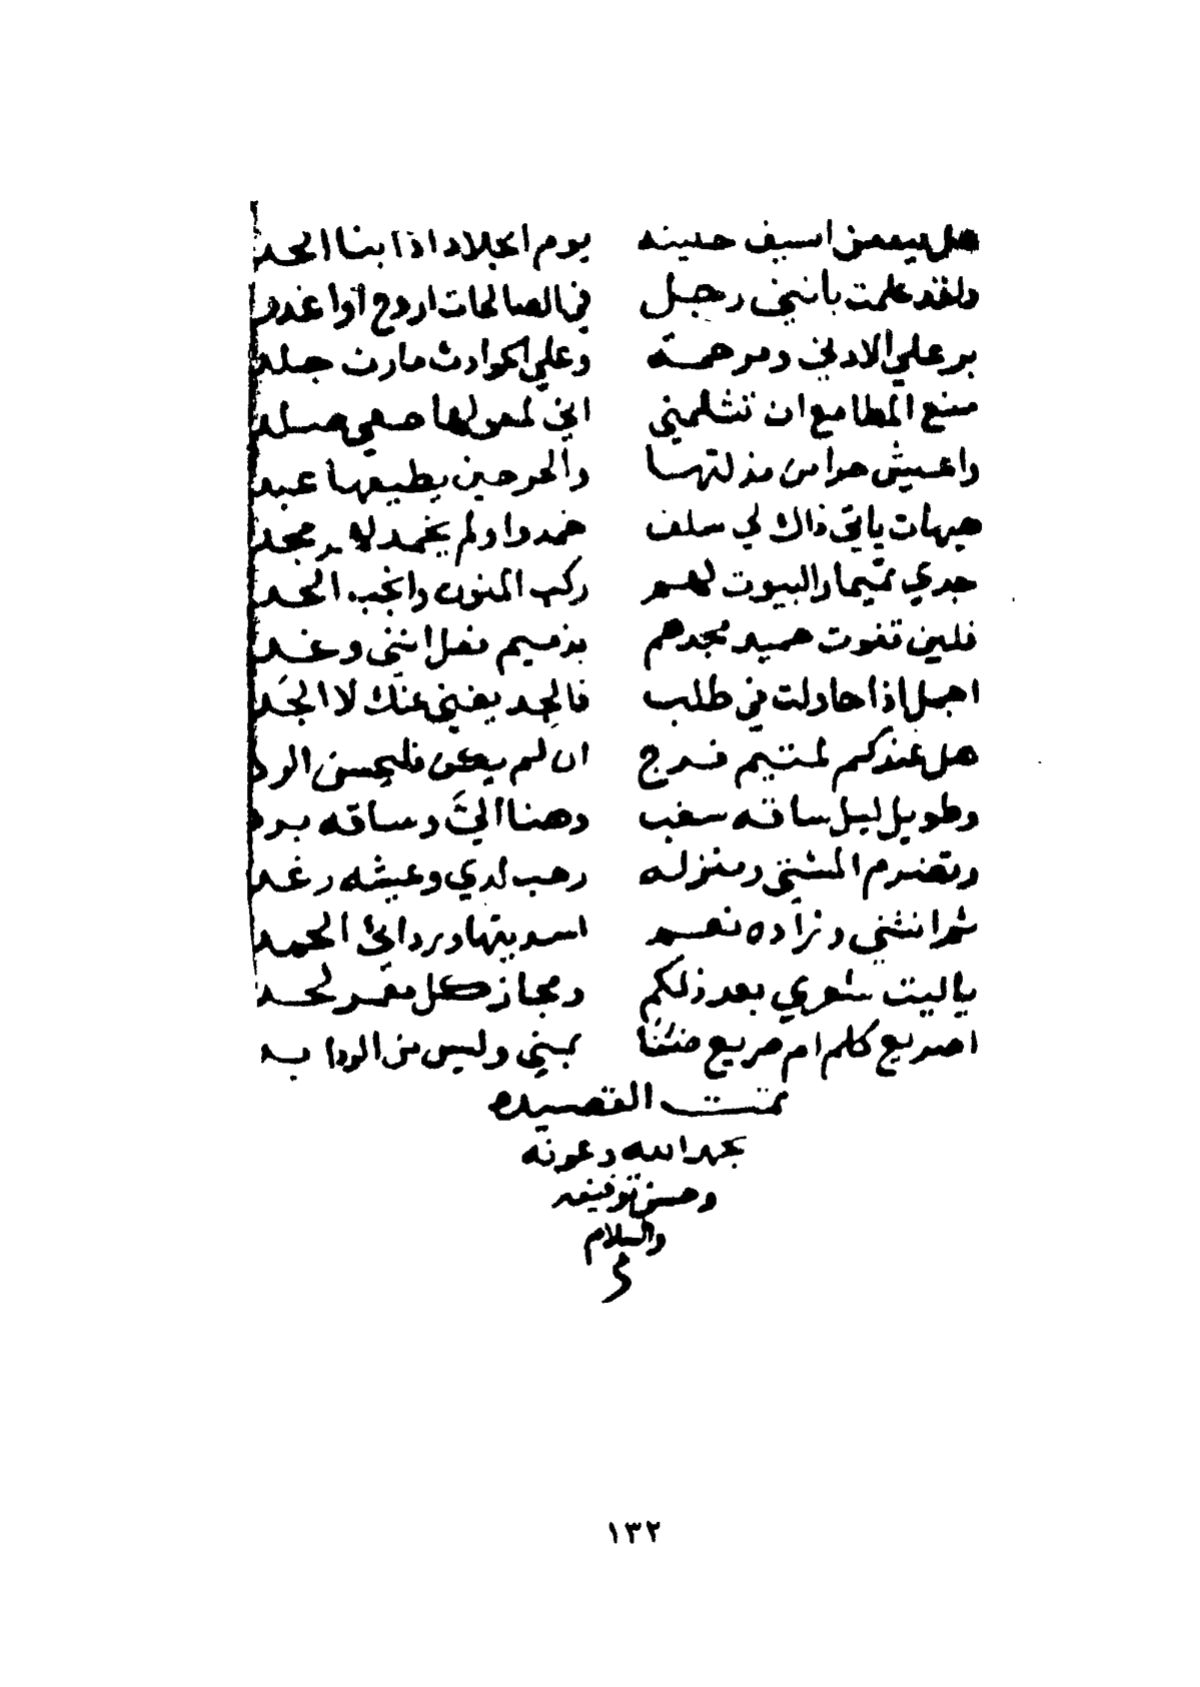 هل ينفعن السيف حليته يوم الجلاد اذا نبا الحد
ولقد علمت بأنني رجل في الصالحات اروح أوا غدو
بر علي الادنى ومرحمة وعلي الحوادث مارن جلد
منع المطامع ان تثلمني اني لمعولها صفي صلد
واعيش حرا من مذلتها والحر حين يطيعها عبد
هيهات يأتي ذاك لي سلف خمدوا ولم يخمد لهم مجد
جدي تميما والبيوت لهم ركب المنون وانجب الجد
فلين تفوت حميد مجدهم بذميم فعل انني وغد
اجمل اذا حاولت في طلب فالجد يغني عنك لا الجد
هل عندكم لمتيم فرج ان لم يكن فليحسن الرد
وطويل ليل ساقه سغب وهنا الي وساقه برد
وتضرم المشتى ومنزله رحب لدي وعيشه رغد
ثم انثنى وزاده نعم اسديتها وردائي الحمد
ياليت شعري بعد ذلكم ومجاز كل معمر لحد
اصريع كلم ام صريع ضنًا بمبني وليس من الودا بد
تمت القصيده
بحمد الله وعونه
وحسن توفيقه
والسلام
م
١٣٢